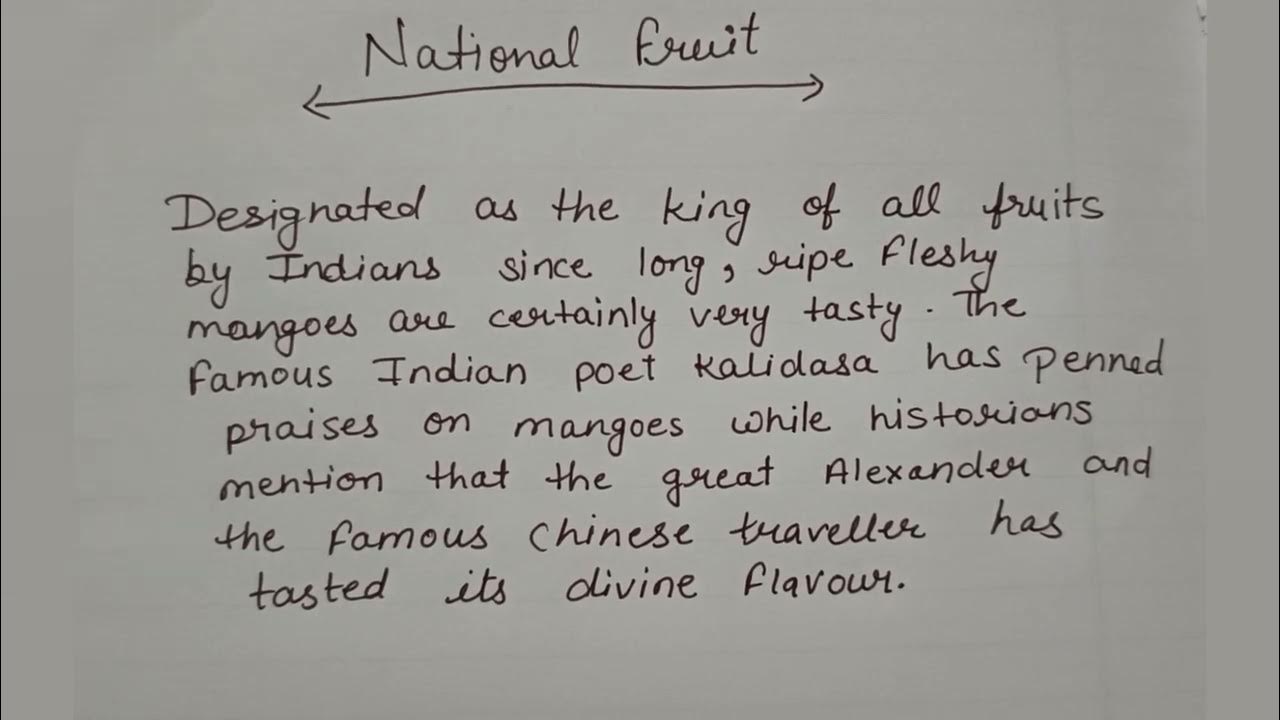 National Fruit
Designated as the king of all fruits
by Indians since long, ripe fleshy
mangoes are certainly very tasty. The
famous Indian poet Kalidasa has penned
praises on mangoes while historians
mention that the great Alexander and
the famous Chinese traveller has
tasted its divine flavour.